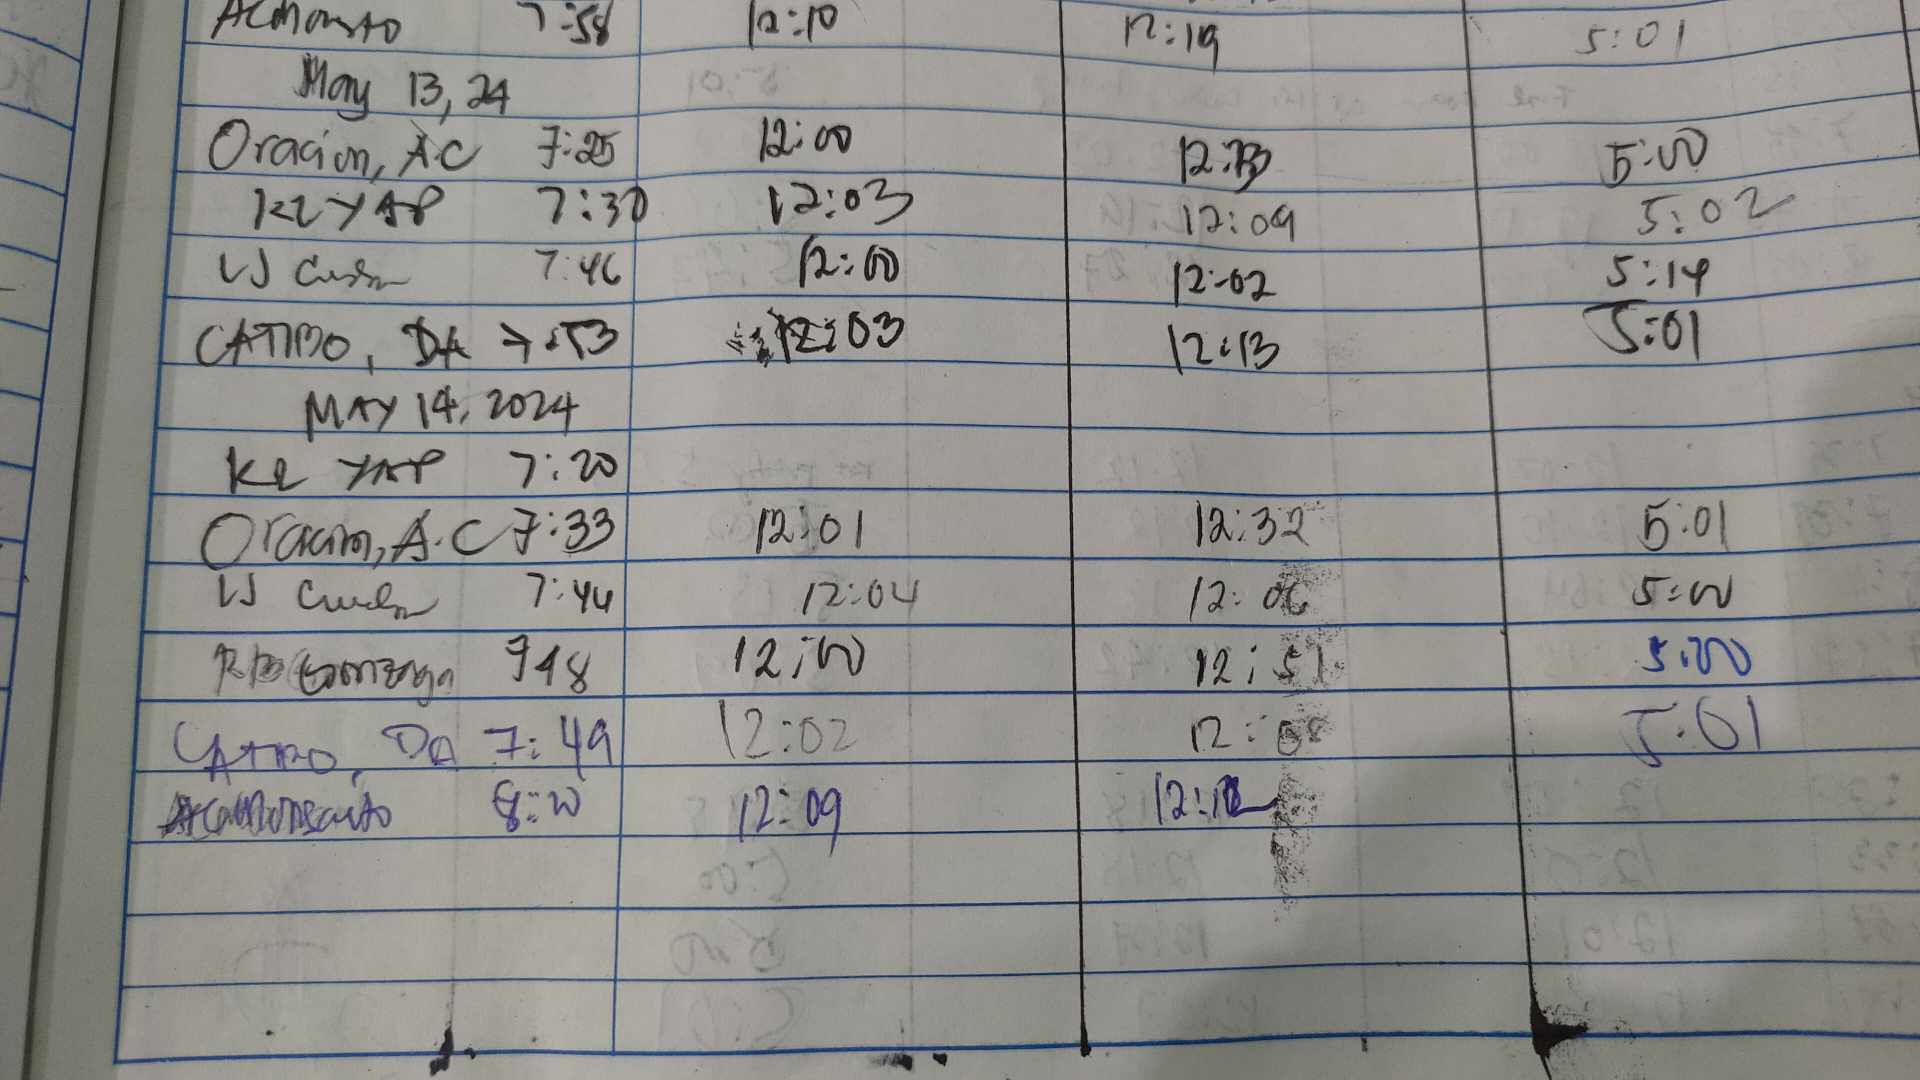 7:58 12:10 12:19 5:01
May 13, 24
Oracion, A.C 7:25 12:00 12:33 5:00
KL YAP 7:30 12:03 12:09 5:02
LJ 7:46 12:00 12:02 5:14
CATIBO, DA 7:53 12:03 12:13 5:01
MAY 14, 2024
KL YAP 7:20
Oracion, A.C 7:33 12:01 12:32 5:01
LJ 7:44 12:04 12:06 5:00
RB Gonzaga 748 12:00 12:51 5:00
CATIBO, DA 7:49 12:02 12:08 5:01
8:20 12:09 12:12